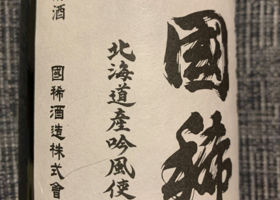 國稀
北海道産吟風使
國稀酒造株式會
酒